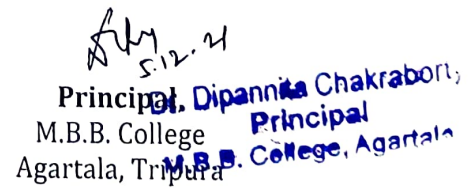 5.12.21
Principal,
M.B.B. College
Agartala, Tripura
Dr. Dipannita Chakraborty,
Principal
M.B.B. College, Agartala